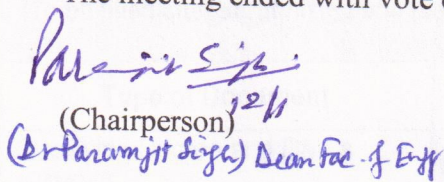 The meeting ended with vote
Paramjit Singh
12/1
(Chairperson)
(Dr Paramjit Singh) Dean Fac. of Engg